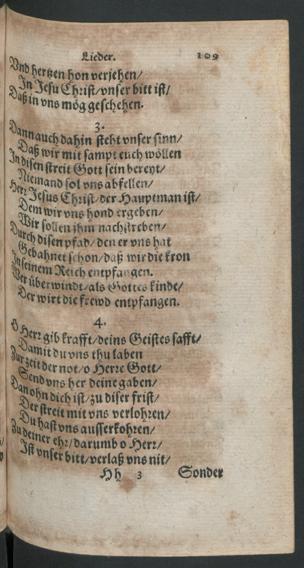 Lieder. 109
Vnd hertzen hon verjehen/
In Jesu Christ/ vnser bitt ist/
Daß in vns mög geschehen.
3.
Dann auch dahin steht vnser sinn/
Daß wir mit sampt euch wöllen
In disen streit Gott sein bereyt/
Niemand sol vns abfellen/
Herr Jesus Christ/ der Hauptman ist/
Dem wir vns hond ergeben/
Wir sollen jhm nachstreben/
Durch disen pfad/ den er vns hat
Gebahnet schon/ daß wir die kron
In seinem Reich entpfangen.
Wer überwindt/ als Gottes kinde/
Der wirt die frewd entpfangen.
4.
O Herr gib krafft/ deins Geistes safft/
Damit du vns thu laben
Zur zeit der not/ o Herre Gott/
Send vns her deine gaben/
Dan ohn dich ist/ zu diser frist/
Der streit mit vns verlohren/
Du hast vns ausserkohren/
Zu deiner ehr/ darumb o Herr/
Ist vnser bitt/ verlaß vns nit/
Hh 3 Sonder